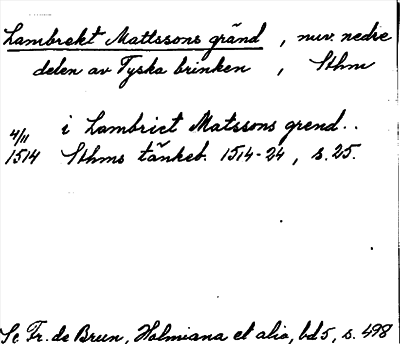 Lambrekt Mattssons gränd, nuv. nedre
delen av Tyska brinken, Sthm
4/11 i Lambrict Matssons grend..
1514 Sthms tänkeb. 1514-24, s. 25.
Se Fr. de Brun, Holmiana et alia, bd 5, s. 498